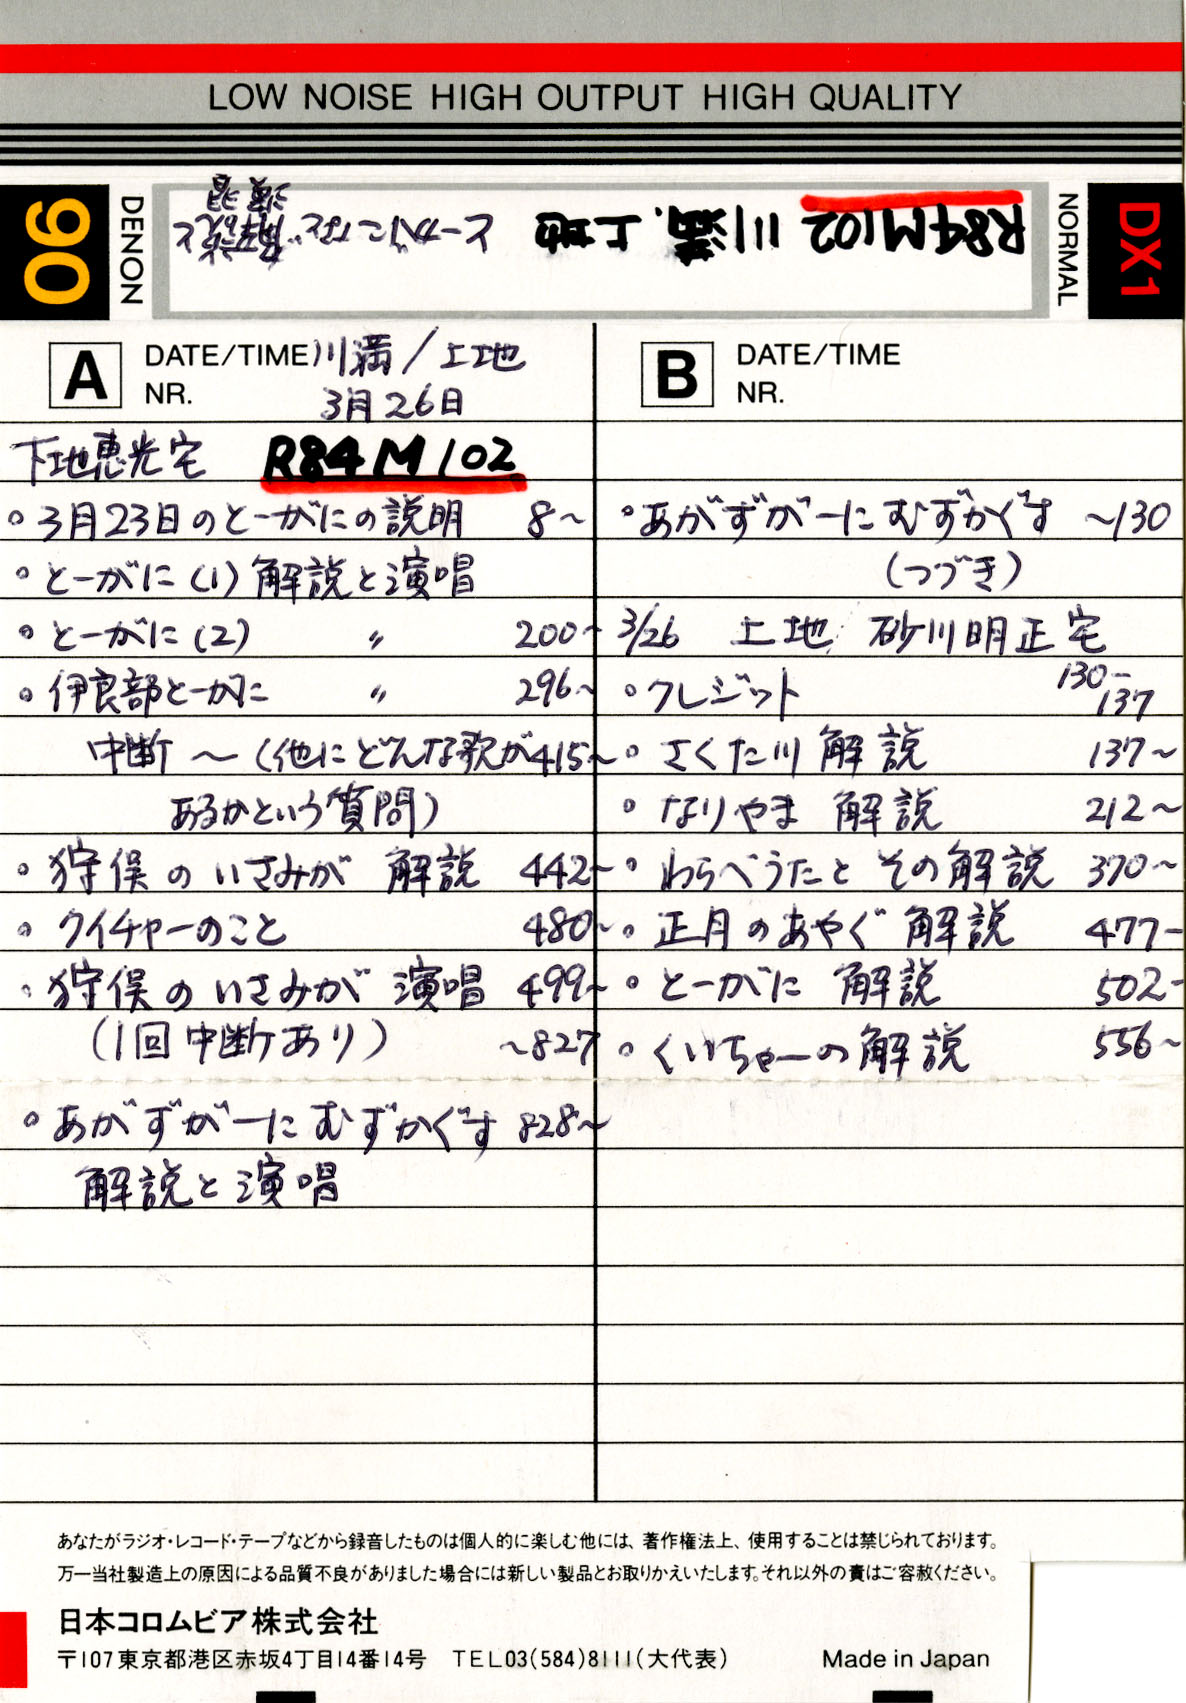 LOW NOISE HIGH OUTPUT HIGH QUALITY
90
DENON
R84M102 川満、上地
とーがになど 解説と
演唱
NORMAL
DX1
A DATE/TIME 川満/上地
NR. 3月26日
下地恵光宅 R84M102
。3月23日のとーがにの説明 8~
。とーがに(1) 解説と演唱
。とーがに(2) 〃 200~
。伊良部とーがに 〃 296~
中断 ~ (他にどんな歌が 415~
あるかという質問)
。狩俣のいさみが 解説 442~
。クイチャーのこと 480~
。狩俣のいさみが 演唱 499~
(1回中断あり) ~827
。あがずがーに むずかぐす 828~
解説と演唱
B DATE/TIME
NR.
。あがずがーに むずかぐす ~130
(つづき)
3/26 上地 砂川明正宅
。クレジット 130-137
。さくた川 解説 137~
。なりやま 解説 212~
。わらべうたと その解説 370~
。正月のあやぐ 解説 477-
。とーがに 解説 502-
。くいちゃーの解説 556~
あなたがラジオ・レコード・テープなどから録音したものは個人的に楽しむ他には、著作権法上、使用することは禁じられております。
万一当社製造上の原因による品質不良がありました場合には新しい製品とお取りかえいたします。それ以外の責はご容赦ください。
日本コロムビア株式会社
〒107東京都港区赤坂4丁目14番14号 TEL03(584)8111(大代表) Made in Japan